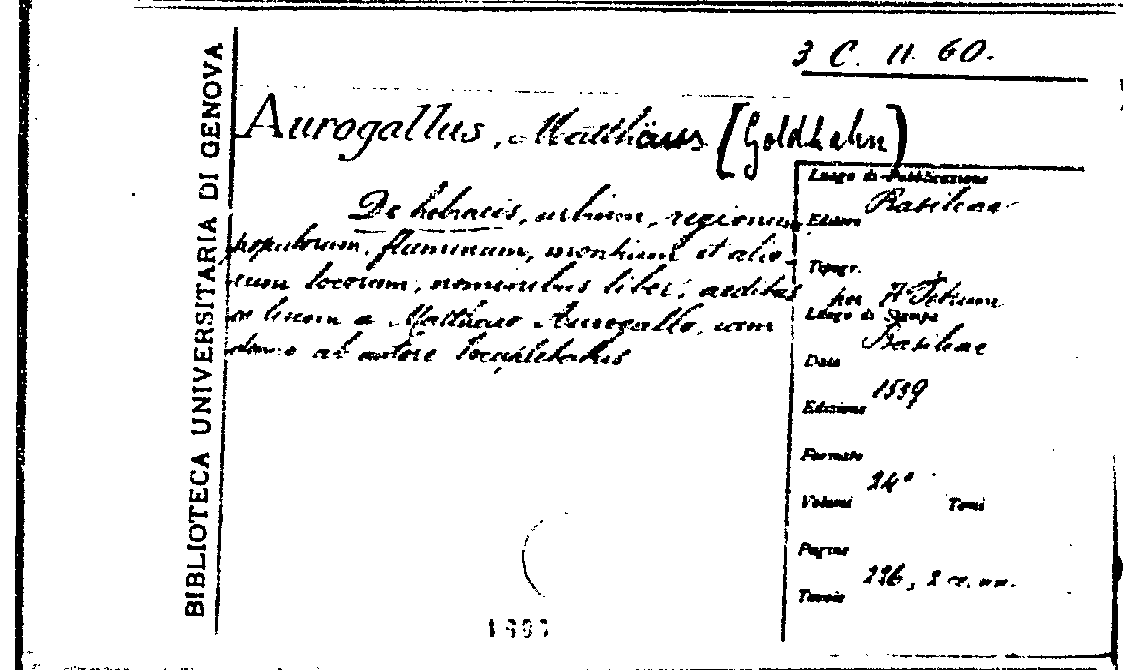 BIBLIOTECA UNIVERSITARIA DI GENOVA
3 C. II. 60.
Aurogallus, Matthäus [Goldhahn]
De hebraeis, urbium, regionum,
populorum, fluminum, montium et alio-
rum locorum, nominibus liber; aeditus
a Matthaeo Aurogallo, iam
ab autore locupletatus
Luogo di Pubblicazione
Basileae
Editore
Tipogr.
per H. Petrum
Luogo di Stampa
Basileae
Data
1539
Edizione
Formato
24°
Volumi Tomi
Pagine
, 2 cc. nn.
Tavole